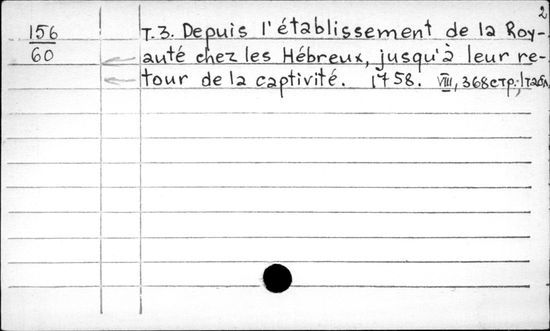 2
156
60
T.3. Depuis l'établissement de la Roy-
auté chez les Hébreux, jusqu'à leur re-
tour de la captivité. 1758. VIII, 368 стр.; 1 табл.